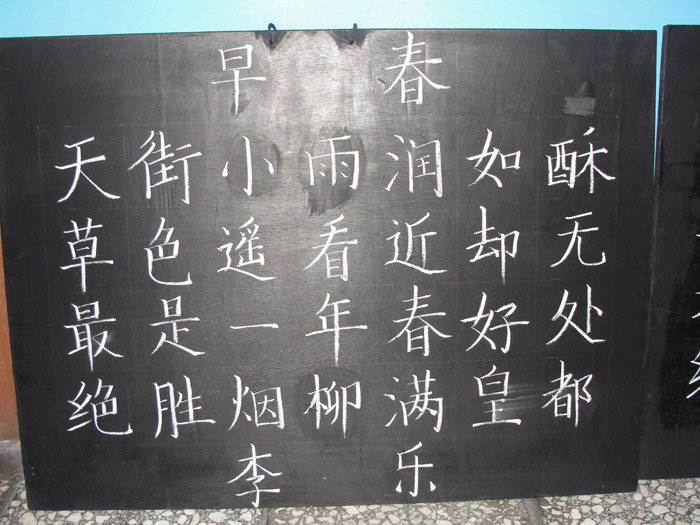 早春
天街小雨润如酥
草色遥看近却无
最是一年春好处
绝胜烟柳满皇都
李乐